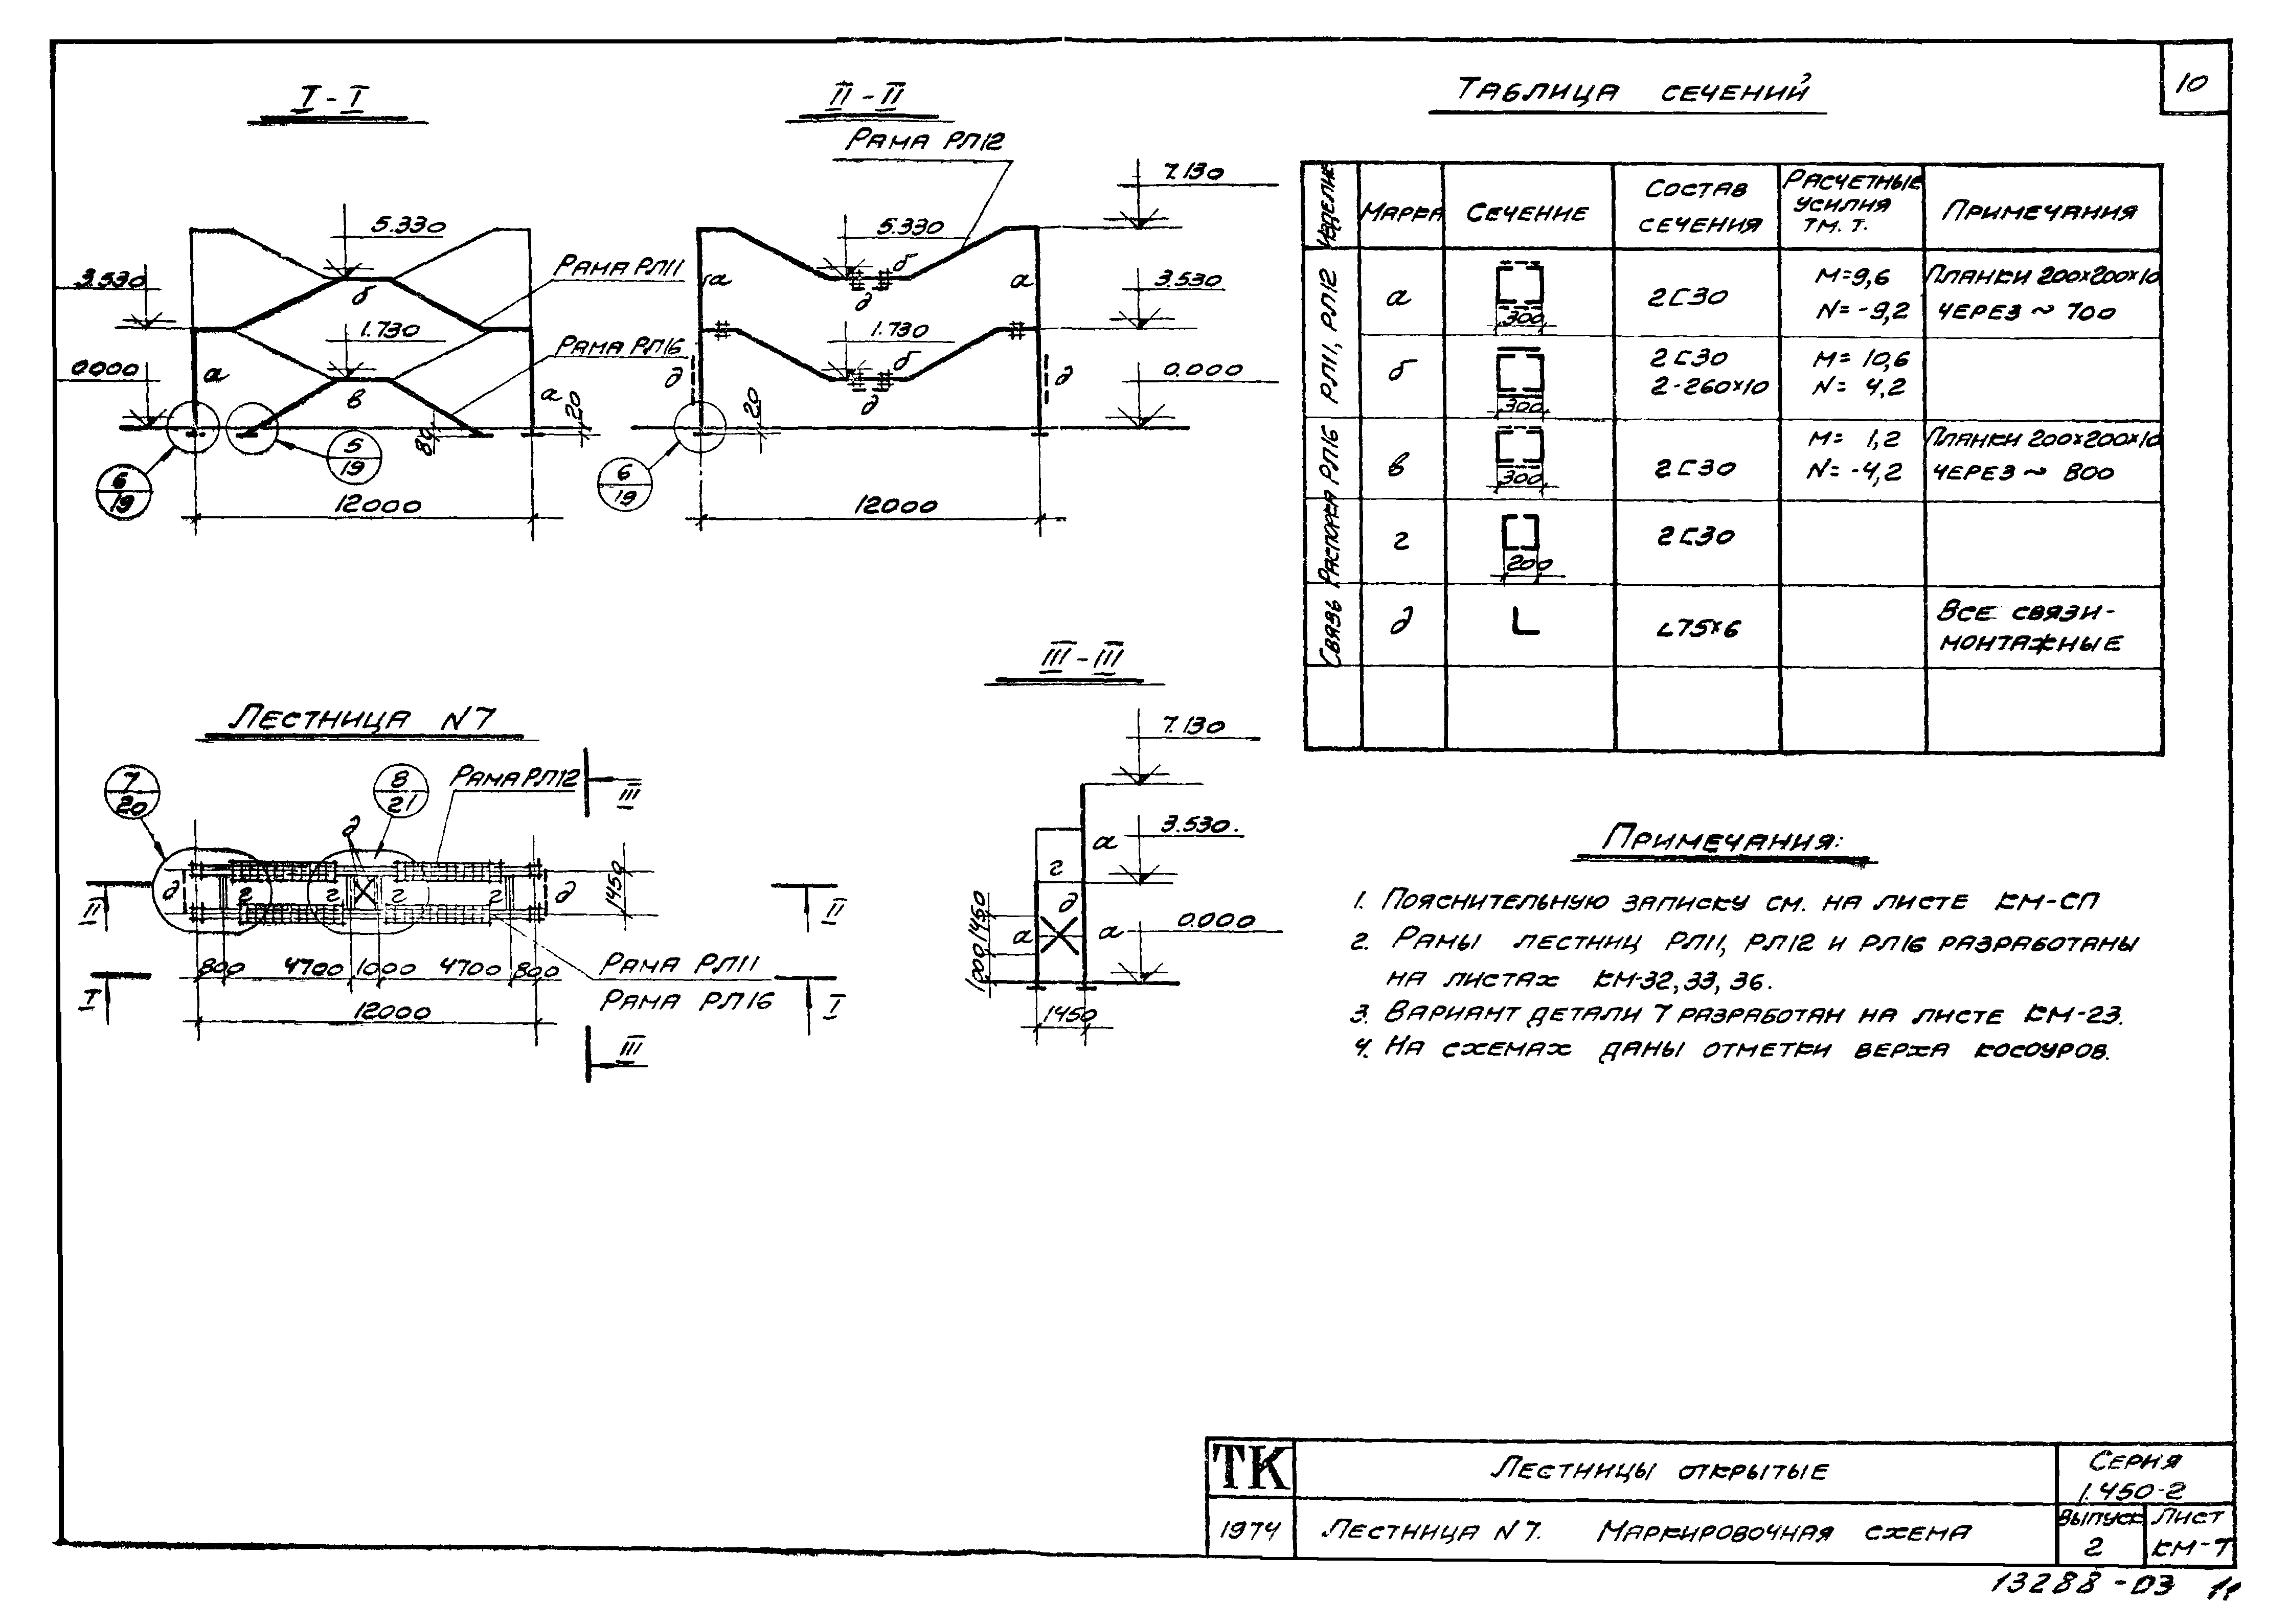 10
I - I
5.330
3.530
1.730
0.000
а
б
в
а
20
80
Рама РЛ11
Рама РЛ16
6
19
5
19
12000
II - II
Рама РЛ12
7.130
5.330
3.530
1.730
0.000
а
б
а
д
б
д
д
д
20
6
19
12000
Таблица сечений
Изделие
Марка
Сечение
Состав сечения
Расчетные усилия тм. т.
Примечания
РЛ11, РЛ12
а
300
2С30
М=9,6
N=-9,2
Планки 200х200х10
через ~ 700
б
300
2С30
2-260х10
М= 10,6
N= 4,2
РЛ16
в
300
2С30
М= 1,2
N=-4,2
Планки 200х200х10
через ~ 800
Распорка
г
200
2С30
Связь
д
L75х6
Все связи-
монтажные
Лестница N7
7
20
8
21
Рама РЛ12
III
д
д
г
г
г
г
д
1450
II
II
800
4700
1000
4700
800
Рама РЛ11
Рама РЛ16
I
I
12000
III
III - III
7.130
3.530.
0.000
а
г
д
а
а
1450
1000
1450
Примечания:
1. Пояснительную записку см. на листе КМ-СП
2. Рамы лестниц РЛ11, РЛ12 и РЛ16 разработаны
на листах КМ-32, 33, 36.
3. Вариант детали 7 разработан на листе КМ-23.
4. На схемах даны отметки верха косоуров.
ТК
Лестницы открытые
Серия
1.450-2
1974
Лестница N7. Маркировочная схема
Выпуск
2
Лист
КМ-7
13288-03 11